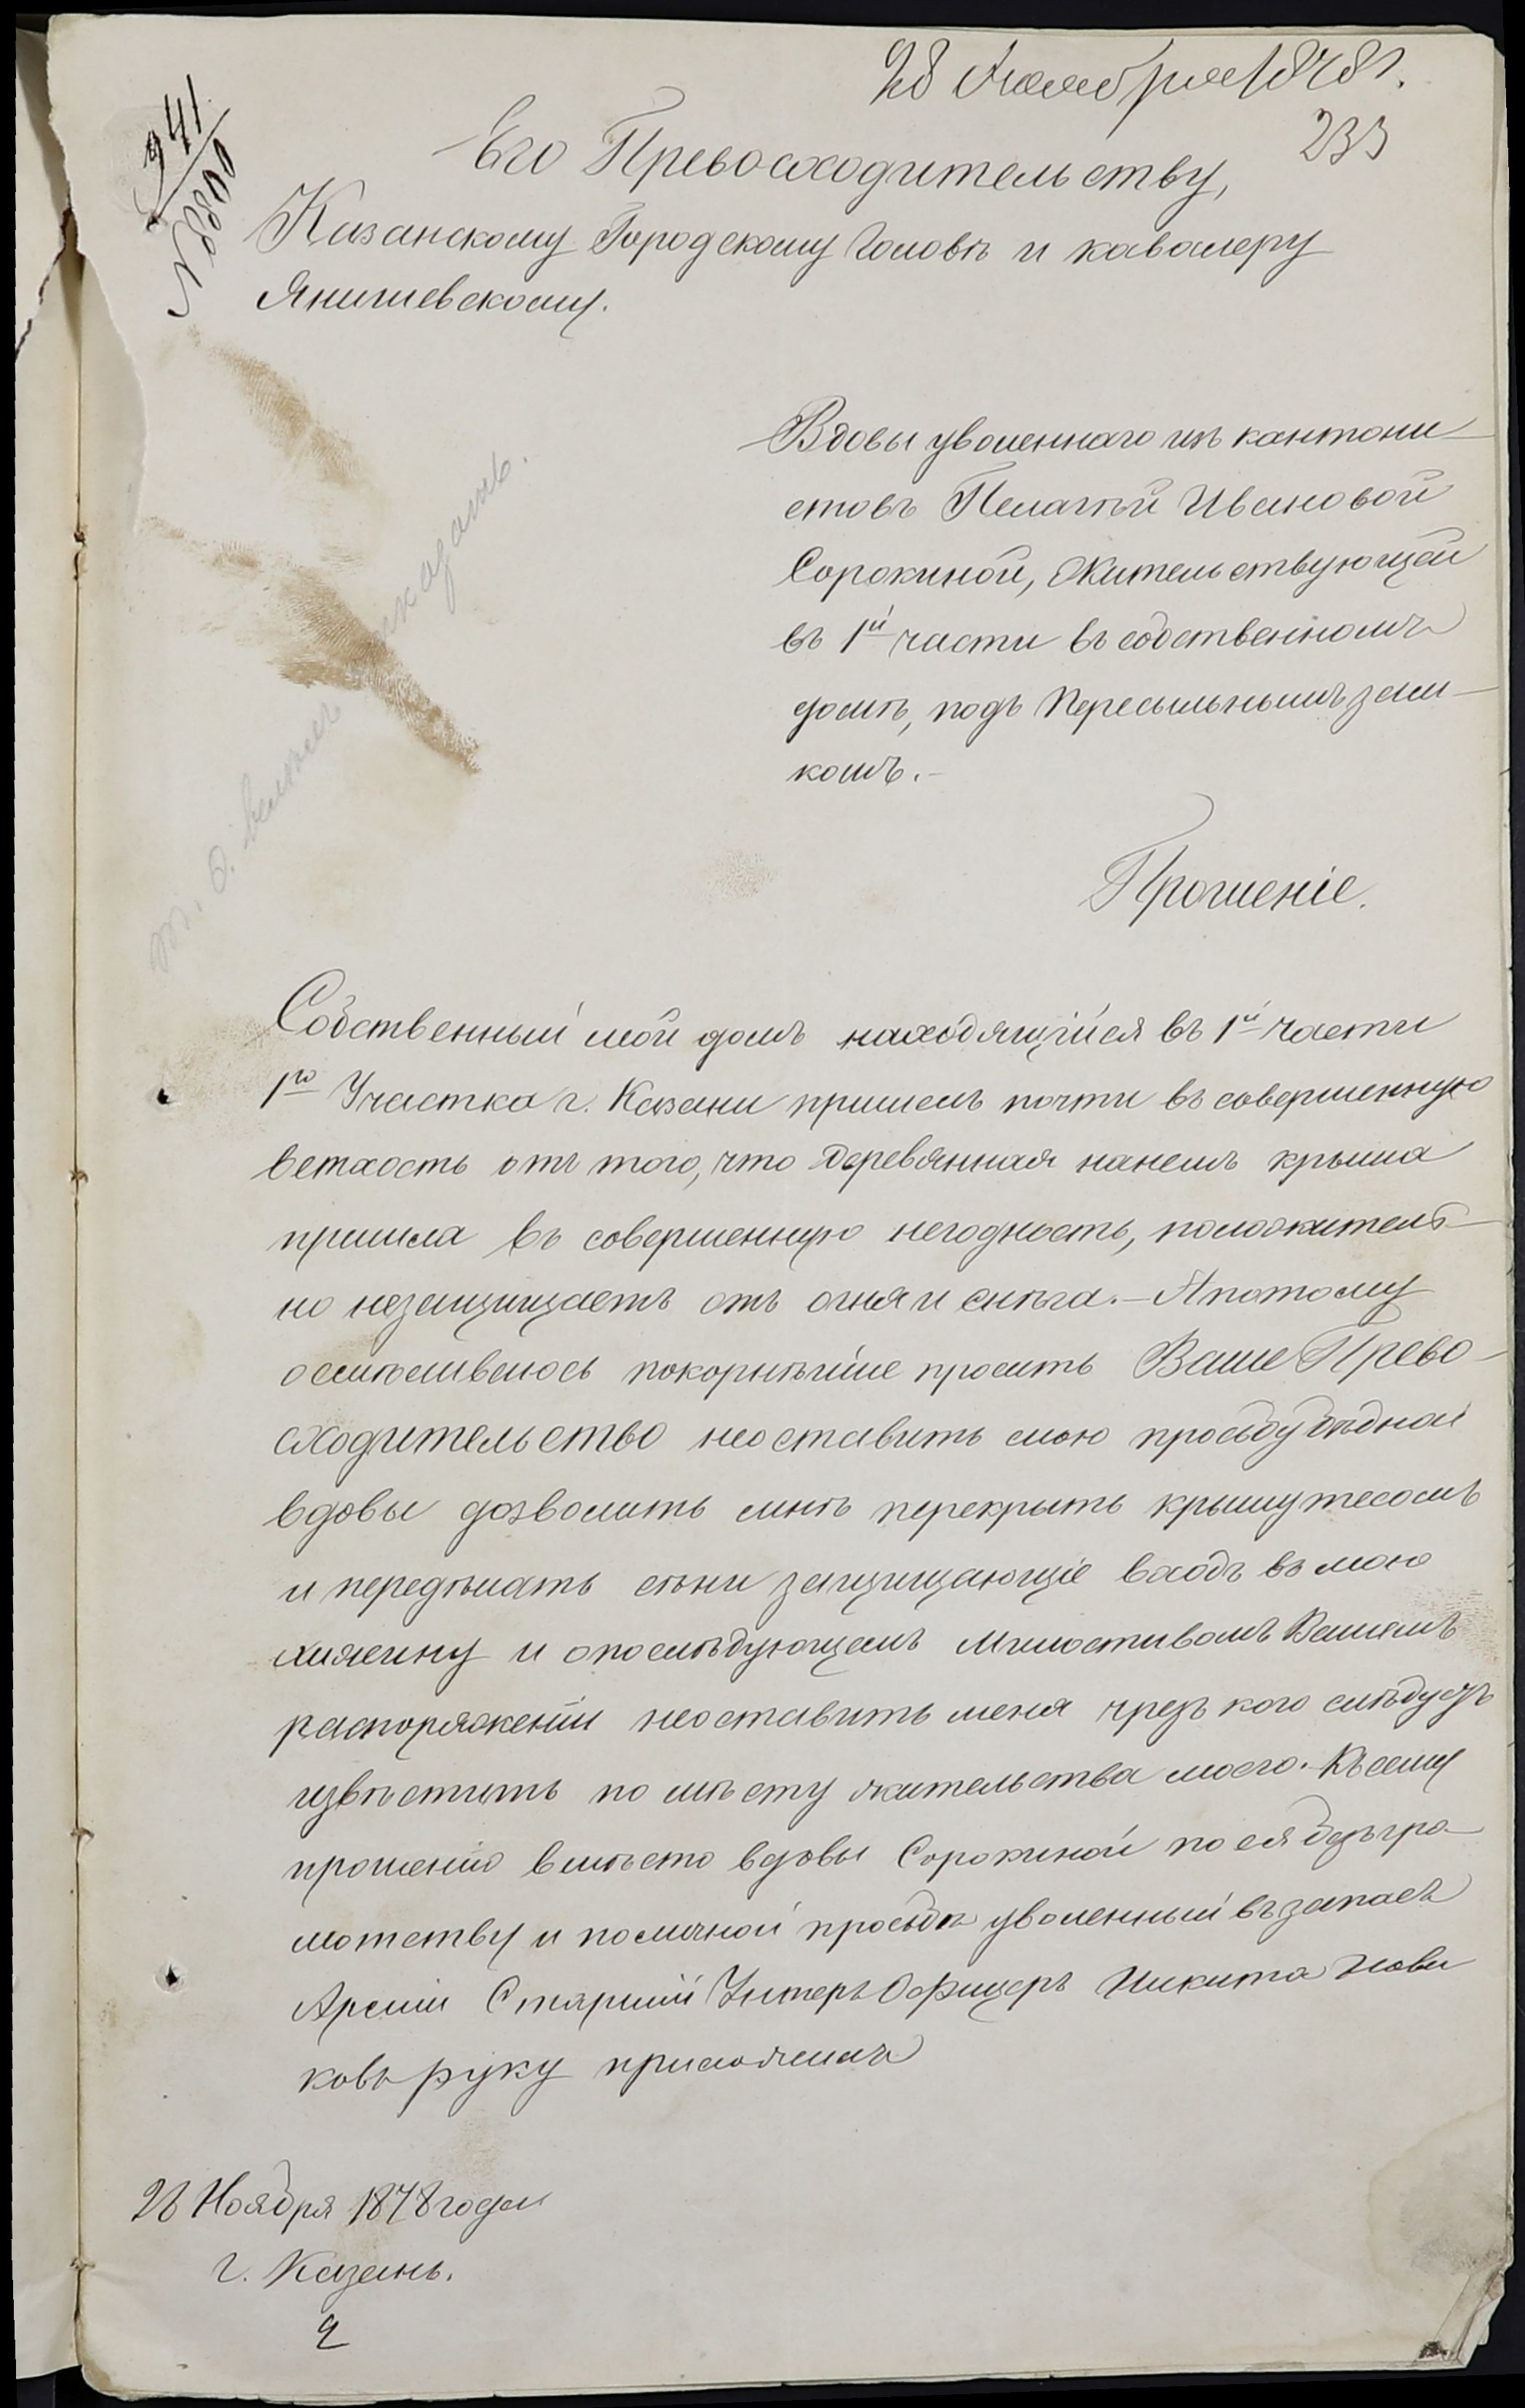 28 Ноября 1878 г.
233
Его Превосходительству,
Казанскому Городскому Головѣ и кавалеру
Янишевскому.
Вдовы уволеннаго изъ кантони-
стовъ Пелагѣи Ивановой
Сорокиной, Жительствующей
въ 1й части въ собственномъ
домѣ, подъ Пересыльнымъ зам-
комъ.-
Прошеніе.
Собственный мой домъ находящійся въ 1й части
1го Участка г. Казани пришелъ почти въ совершенную
ветхость отъ того, что деревянная нанемъ крыша
пришла въ совершенную негодность, положитель-
но незащищаетъ отъ огня и снѣга.- А потому
осмѣливаюсь покорнѣйше просить Ваше Прево-
сходительство неоставить мою прозьбу бѣдной
вдовы дозволить мнѣ перекрыть крышу тесомъ
и передѣлать сѣни защищающіе входъ въ мою
хижину и опослѣдующемъ Милостивомъ Вашемъ
распоряженіи неоставить меня чрезъ кого слѣдуетъ
извѣстить по мѣсту жительства моего. Къ сему
прошенію вмѣсто вдовы Сорокиной по ея безгра-
мотству и поличной прозьбѣ уволенный въ запасъ
Арміи Старшій Унтеръ Офицеръ Никита Нови
ковъ руку приложилъ
28 Ноября 1878 года
г. Казань.